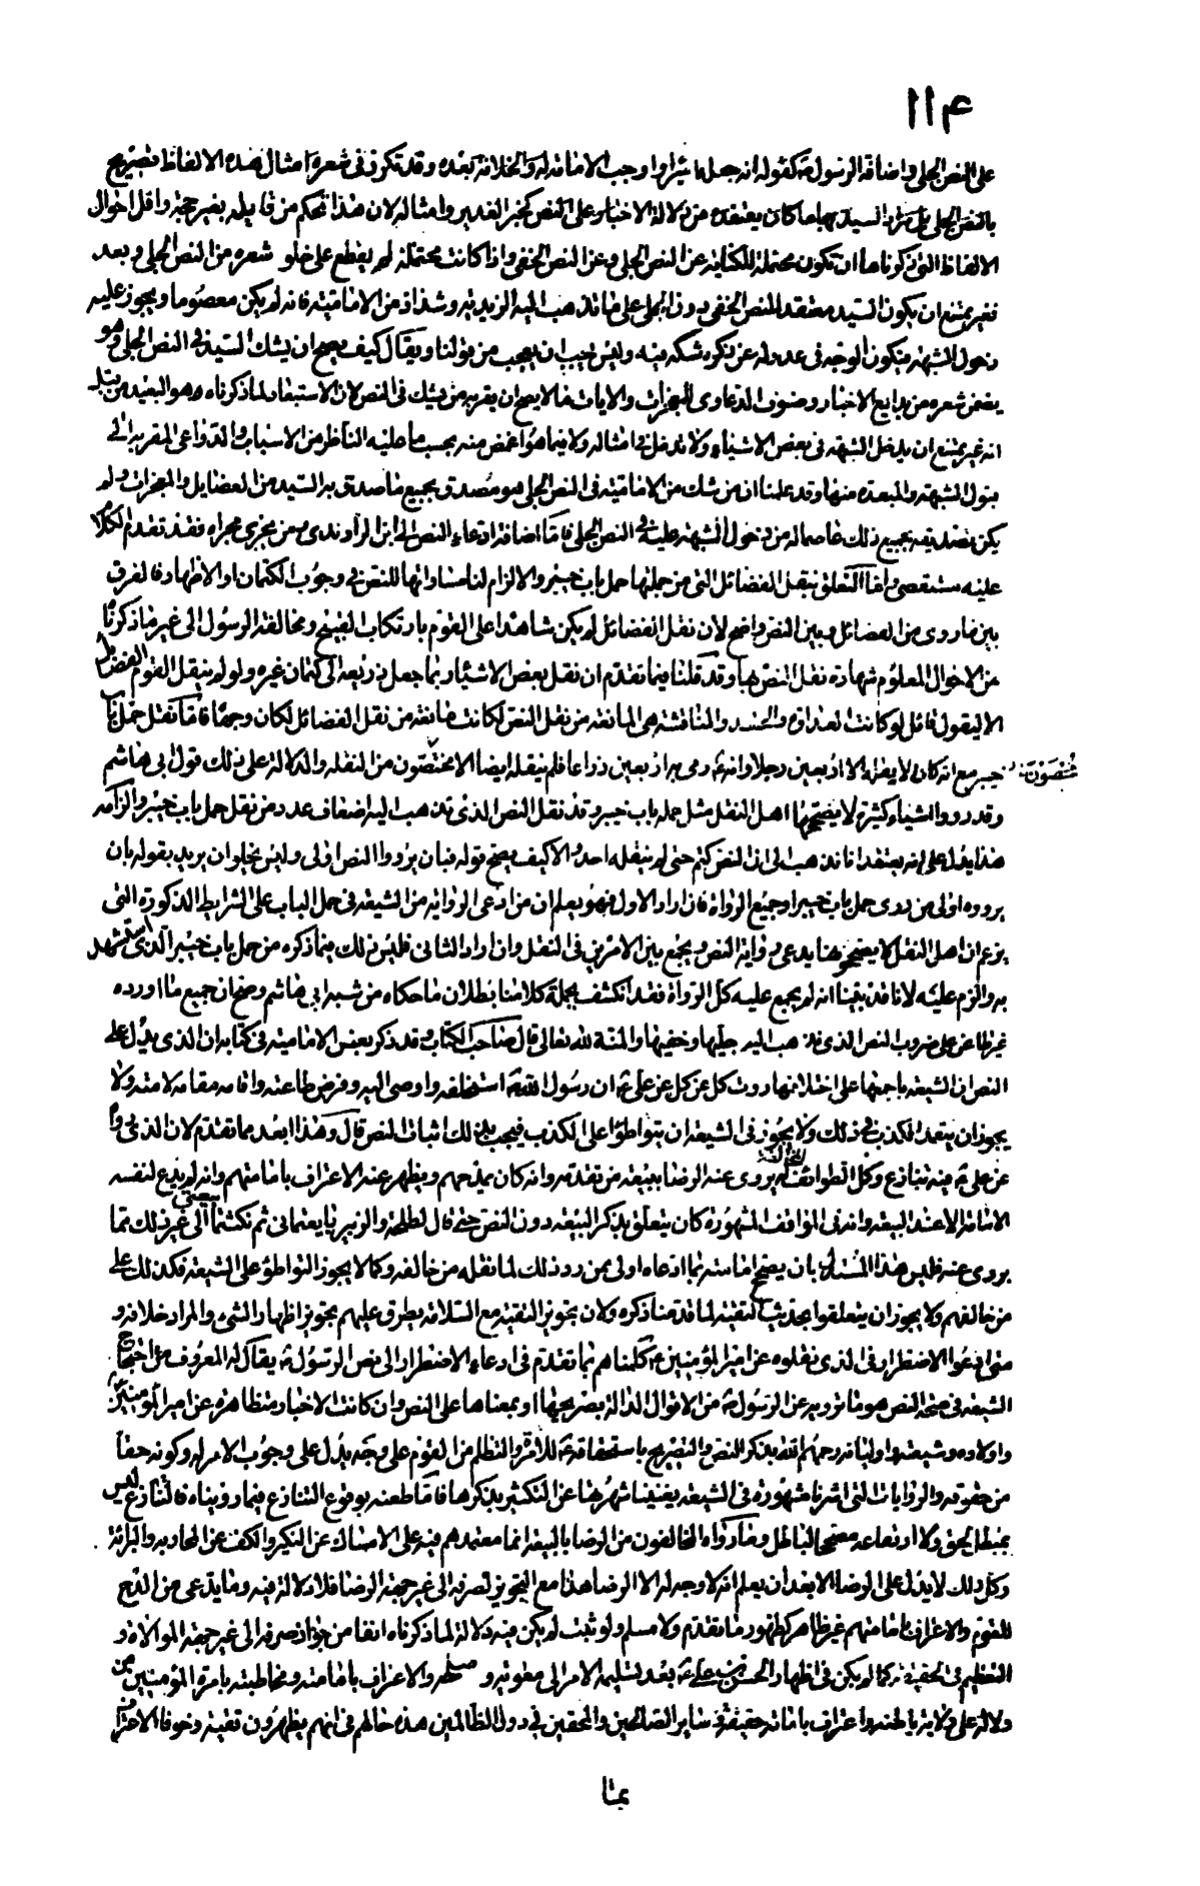 ١١٤
على النص الجلي واضافة الرسول ص كقوله انه جعل ما ثيرا واوجب الامامة له والخلافة بعده وقد تكرر في شعره امثال هذه الالفاظ فتصريح
بالنص الجلي بل مراد السيد بها ما كان يعتقده من دلالة الاخبار على النص كخبر الغدير وامثاله لان هذا تحكم من قايله بغير حجة واقل احوال
الالفاظ التي ذكرناها ان تكون محتملة للكناية عن النص الجلي وعن النص الخفي واذا كانت محتملة لم يقطع على خلو شعره من النص الجلي وبعد
فغير ممتنع ان يكون السيد معتقدا للنص الخفي دون الجلي على ما تذهب اليه الزيدية وشذاذ من الامامية فانه لم يكن معصوما ويجوز عليه
دخول الشبهة فيكون الوجه في عدوله عن ذكره شكه فيه وليس يجب ان يعجب من قولنا ويقال كيف يصح ان يشك السيد في النص الجلي وهو
يضمن شعره من بدايع الاخبار وصنوف الدعاوى المعجزات والايات ما لا يصح ان يقربه من يشك في النص لان الاستبعاد لما ذكرناه وهو البعيد من قبله
انه غير ممتنع ان يدخل الشبهة في بعض الاشياء ولا تدخل في امثاله ولا فيما هو اغمض منه بحسب ما عليه الناظر من الاسباب والدواعي المقربه الى
قبول الشبهة والمبعدة منها وقد علمنا ان من شك من الامامية في النص الجلي هو مصدق بجميع ما صدق به السيد من الفضايل والمعجزات ولم
يكن تصديقه بجميع ذلك عاصما له من دخول الشبهة عليه في النص الجلي فاما اضافة ادعاء النص الى ابن الراوندي ومن يجري مجراه فقد تقدم الكلام
عليه مستقصى واما التعلق بنقل الفضائل التي من جملتها حمل باب خيبر والالزام لنا مساواتها للنص في وجوب الكتمان او الاظهار فالفرق
بين ما روى من الفضائل وبين النص واضح لان نقل الفضائل لم يكن شاهدا على القوم بارتكاب القبيح ومخالفة الرسول الى غير ما ذكرناه
من الاحوال المعلوم شهادة نقل النص بها وقد قلنا فيما تقدم ان نقل بعض الاشياء ربما جعل ذريعة الى كتمان غيره ولو لم ينقل القوم الفضائل
الا ليقول قائل لو كانت العداوة والحسد والمنافسة هي المانعة من نقل النص لكانت مانعة من نقل الفضائل لكان وجها فاما نقل حمل باب
خيبر مع انه كان لا يقله الا اربعين رجلا وانه ع رمى به اربعين ذراعا فلم ينقله ايضا الا مختصون من النقله والدلالة على ذلك قول ابي هاشم
وقد رووا اشياء كثيرة لا يصححها اهل النقل مثل حمله باب خيبر وقد نقل النص الذي تذهب اليه اضعاف عدد من نقل حمل باب خيبر والزامه
هذا يدل على انه يعتقد انا نذهب الى ان النص كتم حتى لم ينقله احد والا كيف يصح قوله فبان يرووا النص اولى وليس يخلو ان يريد بقوله بان
يرووه اولى من روى حمل باب خيبر او جميع الرواة فان اراد الاول فهو يعلم ان من ادعى الرواية من الشيعة في حمل الباب على الشرايط المذكورة التي
يزعم ان اهل النقل لا يصححونها يدعى رواية النص ويجمع بين الامرين في النقل وان اراد الثاني فليس ذلك فيما ذكره من حمل باب خيبر الذي استشهد
به والزم عليه لانا قد بينا انه لم يجمع عليه كل الرواة فقد انكشف بجملة كلامنا بطلان ما حكاه من شبه ابي هاشم وصح ان جميع ما اورده
غير طاعن على ضروب النص الذي نذهب اليه جليها وخفيها والمنة لله تعالى قال صاحب الكتاب وقد ذكر بعض الامامية في كتابه ان الذي يدل على
النص ان الشيعة باجمعها على اختلافها روت كل عن كل عن علي ع ان رسول الله ص استخلفه واوصى اليه وفرض طاعته واقامه مقامه لامته ولا
يجوز ان يتعمد الكذب في ذلك ولا يجوز في الشيعة ان يتواطؤا على الكذب فيجب بذلك اثبات النص قال وهذا ابعد مما تقدم لان الذي روا
عن علي ع فيه تنازع وكل الطوائف المخالفة له يروى عنه الرضا ببيعة من تقدمه وانه كان يمدحهم ويظهر عنه الاعتراف بامامتهم وانه لم يدع لنفسه
الامامة الا عند البيعة وانه في المواقف المشهورة كان يتعلق بذكر البيعة دون النص حتى قال لطلحة والزبير بايعتماني ثم نكثتما بيعتي الى غير ذلك مما
يروى عنه فليس هذا المستدل بان يصحح امامته بما ادعاه اولى ممن رد ذلك لما نقله من خالفه وكما لا يجوز التواطؤ على الشيعة فكذلك على
من خالفهم ولا يجوز ان يتعلقوا بحديث التقية لما قد مناذكره ولان تجويز التقية مع السلامة يطرق عليهم تجويز اظهار الشيء والمراد خلافه و
متى ادعوا الاضطرار في الذي نقلوه عن امير المؤمنين ع كلمناهم بما تقدم في ادعاء الاضطرار الى نص الرسول ص يقال له المعروف من احتجاج
الشيعة في صحة النص هو ما نرويه عن الرسول ص من الاقوال الدالة بصريحها او بمعناها على النص وان كانت الاخبار متظاهرة عن امير المؤمنين ع
واولاده وشيعته واوليائه رحمهم الله بذكر النص والتصريح باستحقاقه ع للامرة والتظلم من القوم على وجه يدل على وجوب الامر له وكونه حقا
من حقوقه والروايات التي اشرنا مشهورة في الشيعة يغنينا شهرتها عن التكثير بذكرها فاما طعنه بوقوع التنازع فيما رويناه فالتنازع ليس
بمبطل الحق ولا ارتفاعه مصحح الباطل وما رواه المخالفون من الرضا بالبيعة انما معتمدهم فيه على الامساك عن النكير والكف عن المحاربة والبرائة
وكل ذلك لا يدل على الرضا الا بعد ان يعلم انه لا وجه له الا الرضا هذا مع التجويز لصرفه الى غير جهة الرضا فلا دلالة فيه وما يدعى من المدح
للقوم والاعتراف بامامتهم غير ظاهر كظهور ما تقدم ولا مسلم ولو ثبت لم يكن فيه دلالة لما ذكرناه انفا من جواز صرفه الى غير جهة الموالاة و
التعظيم في الحقيقة كما لم يكن في اظهار الحسن بن علي ع بعد تسليمه الامر الى معوية وصلحه والاعتراف بامامته ومخاطبته بامرة المؤمنين من
دلالة على ولاية باطنه واعتراف بامامة حقيقة في ساير الصالحين والمحقين في دول الظالمين هذه حالهم في انهم يظهرون تقية وخوفا الاعتراف
مختصون
بما